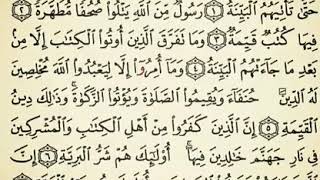 حَتَّىٰ تَأْتِيَهُمُ الْبَيِّنَةُ ۝١ رَسُولٌ مِنَ اللَّهِ يَتْلُوا صُحُفًا مُطَهَّرَةً ۝٢
فِيهَا كُتُبٌ قَيِّمَةٌ ۝٣ وَمَا تَفَرَّقَ الَّذِينَ أُوتُوا الْكِتَابَ إِلَّا مِنْ
بَعْدِ مَا جَاءَتْهُمُ الْبَيِّنَةُ ۝٤ وَمَا أُمِرُوا إِلَّا لِيَعْبُدُوا اللَّهَ مُخْلِصِينَ
لَهُ الدِّينَ حُنَفَاءَ وَيُقِيمُوا الصَّلَوٰةَ وَيُؤْتُوا الزَّكَوٰةَ ۚ وَذَٰلِكَ دِينُ
الْقَيِّمَةِ ۝٥ إِنَّ الَّذِينَ كَفَرُوا مِنْ أَهْلِ الْكِتَابِ وَالْمُشْرِكِينَ
فِي نَارِ جَهَنَّمَ خَالِدِينَ فِيهَا ۚ أُولَٰئِكَ هُمْ شَرُّ الْبَرِيَّةِ ۝٦ إِنَّ